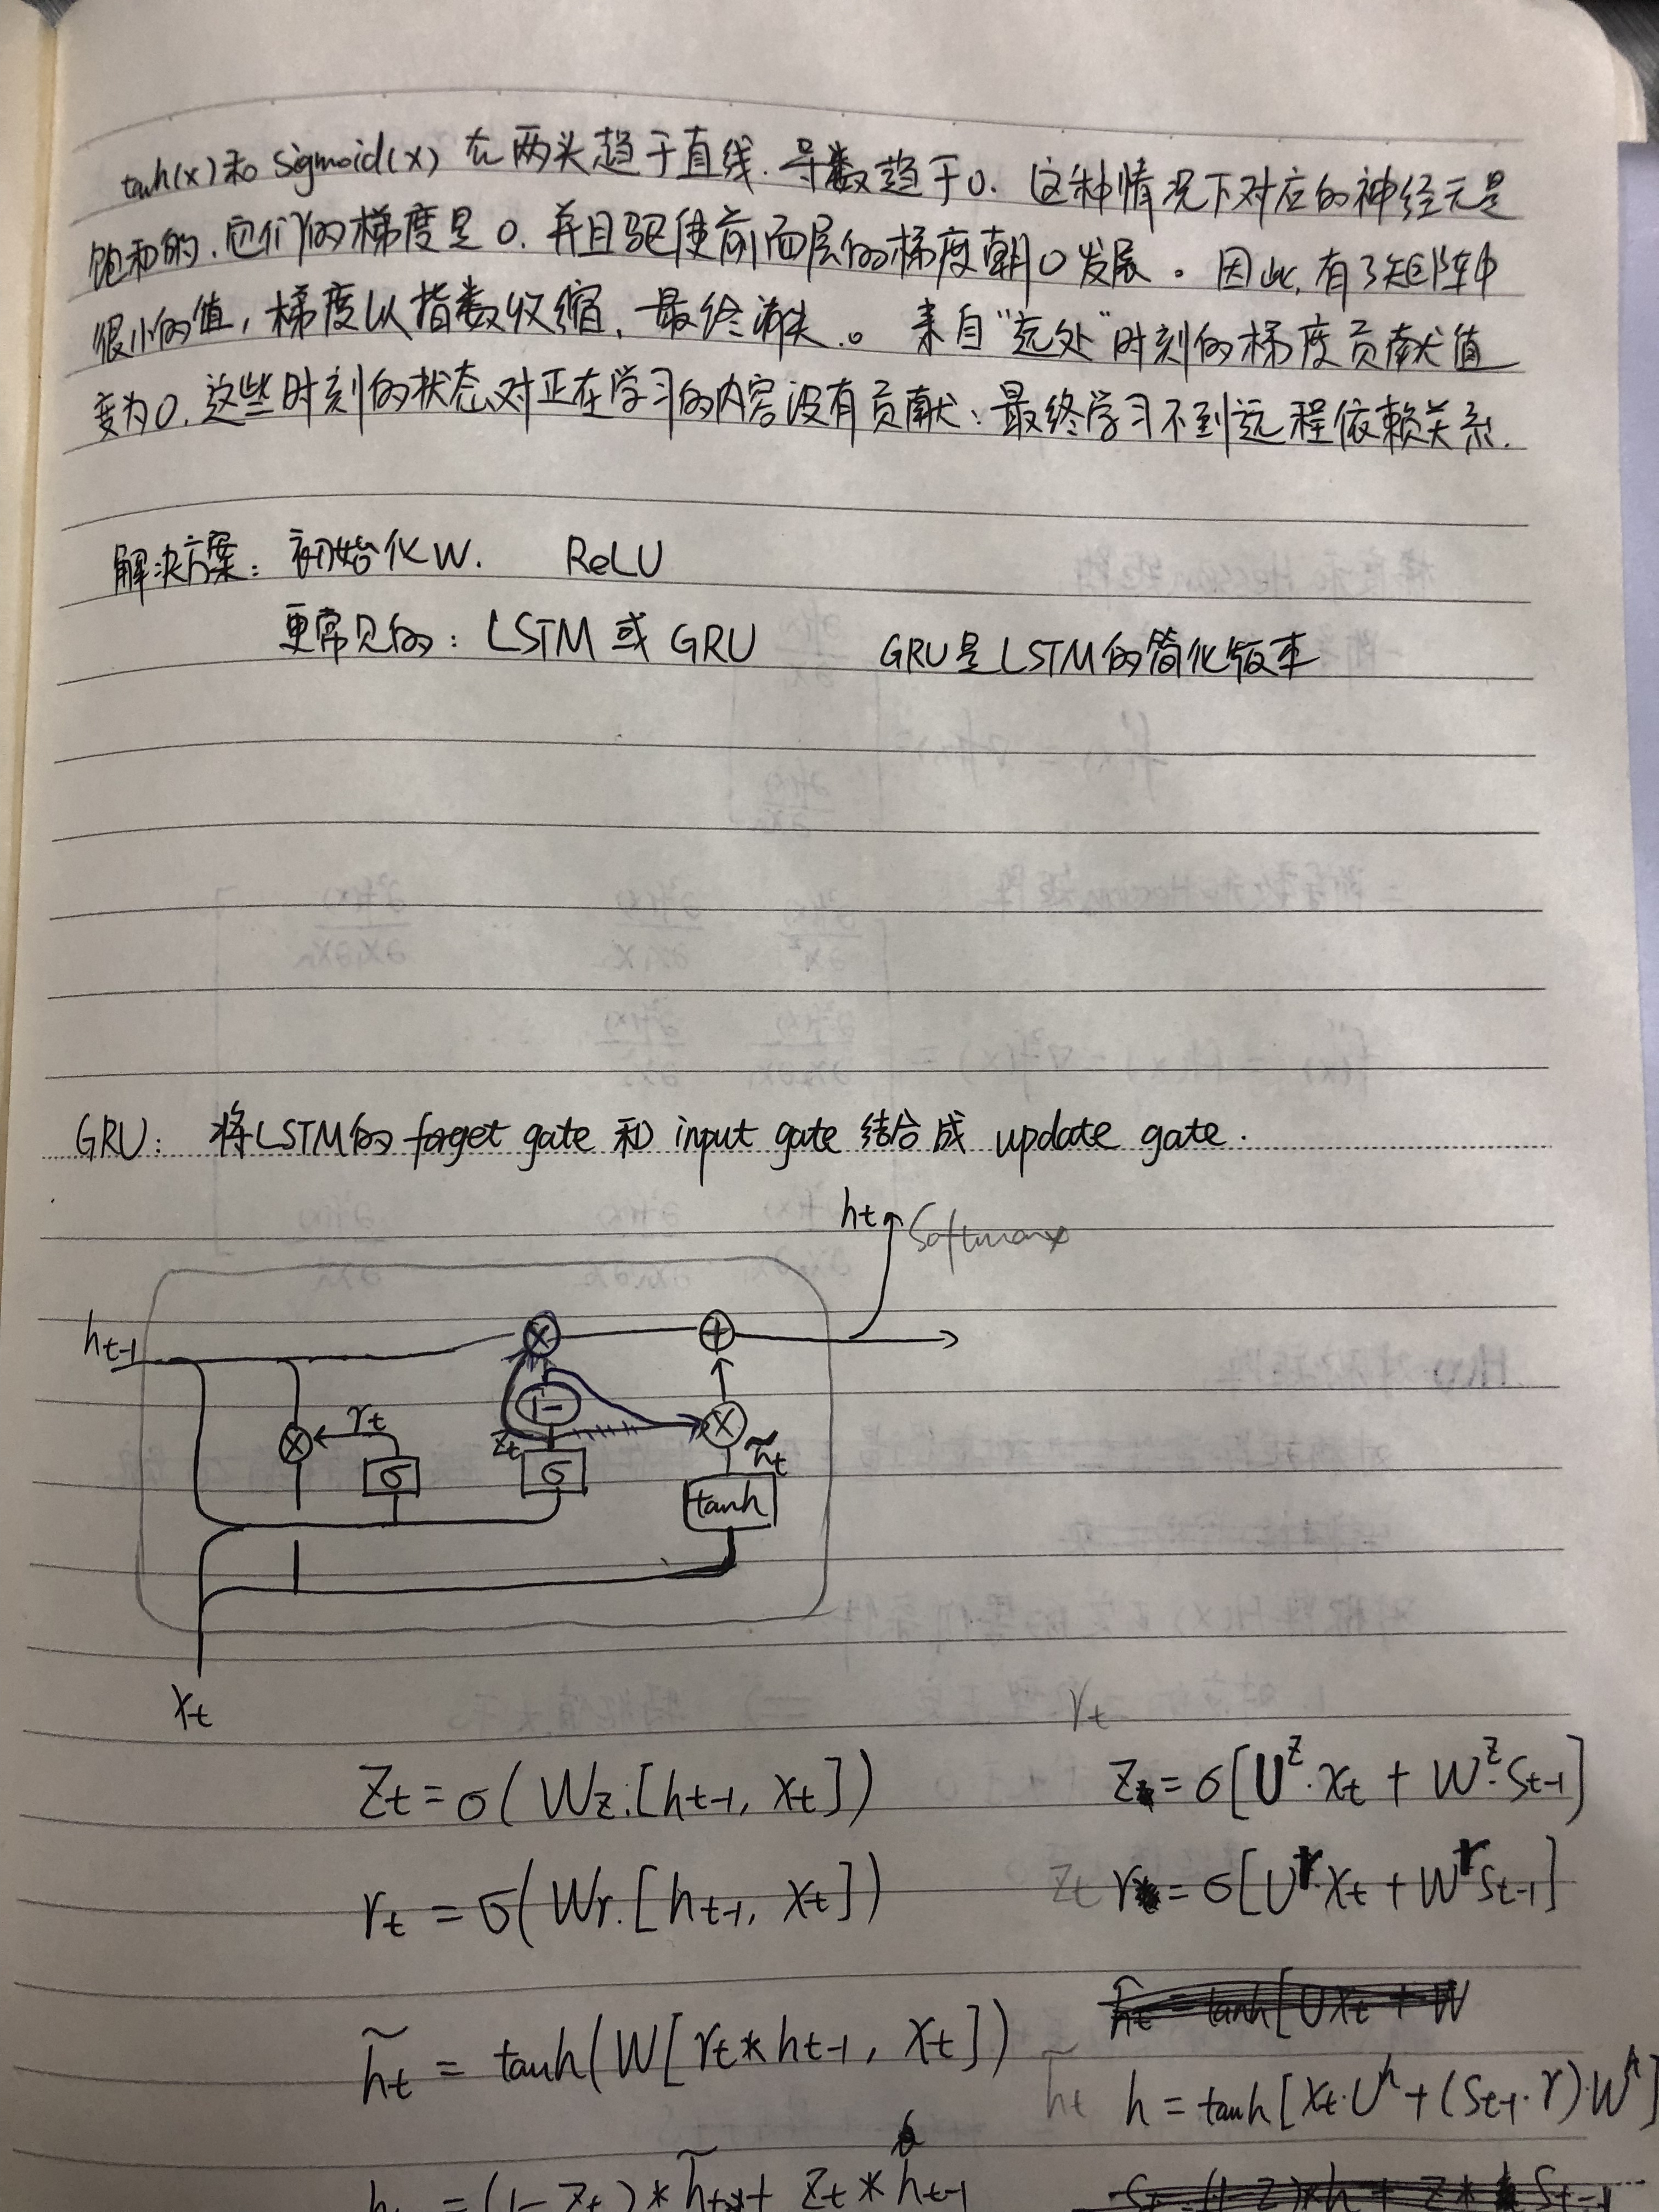 tanh(x)和 sigmoid(x) 在两头趋于直线.导数趋于0. 这种情况下对应的神经元是
饱和的.它们的梯度是0.并且驱使前面层的梯度朝0发展。因此,有了矩阵中
很小的值,梯度以指数收缩,最终消失。来自"远处"时刻的梯度贡献值
变为0.这些时刻的状态对正在学习的内容没有贡献:最终学习不到远程依赖关系.
解决方案: 初始化W. ReLU
更常见的: LSTM 或 GRU GRU是LSTM的简化版本
GRU: 将LSTM的 forget gate 和 input gate 结合成 update gate.
ht Softmax
ht-1
rt
1-
zt
h̃t
σ
σ
tanh
xt
rt
Zt=σ(Wz.[ht-1, xt]) z=σ[U^z·xt + W^z·St-1]
rt=σ(Wr.[ht-1, xt]) zt r=σ[U^r·xt+W^r St-1]
h̃t = tanh(W[rt*ht-1, xt])
h̃t h=tanh[xt·U^h+(St-1·r)·W^h]
=(1-Zt)*h̃t+ Zt*ht-1